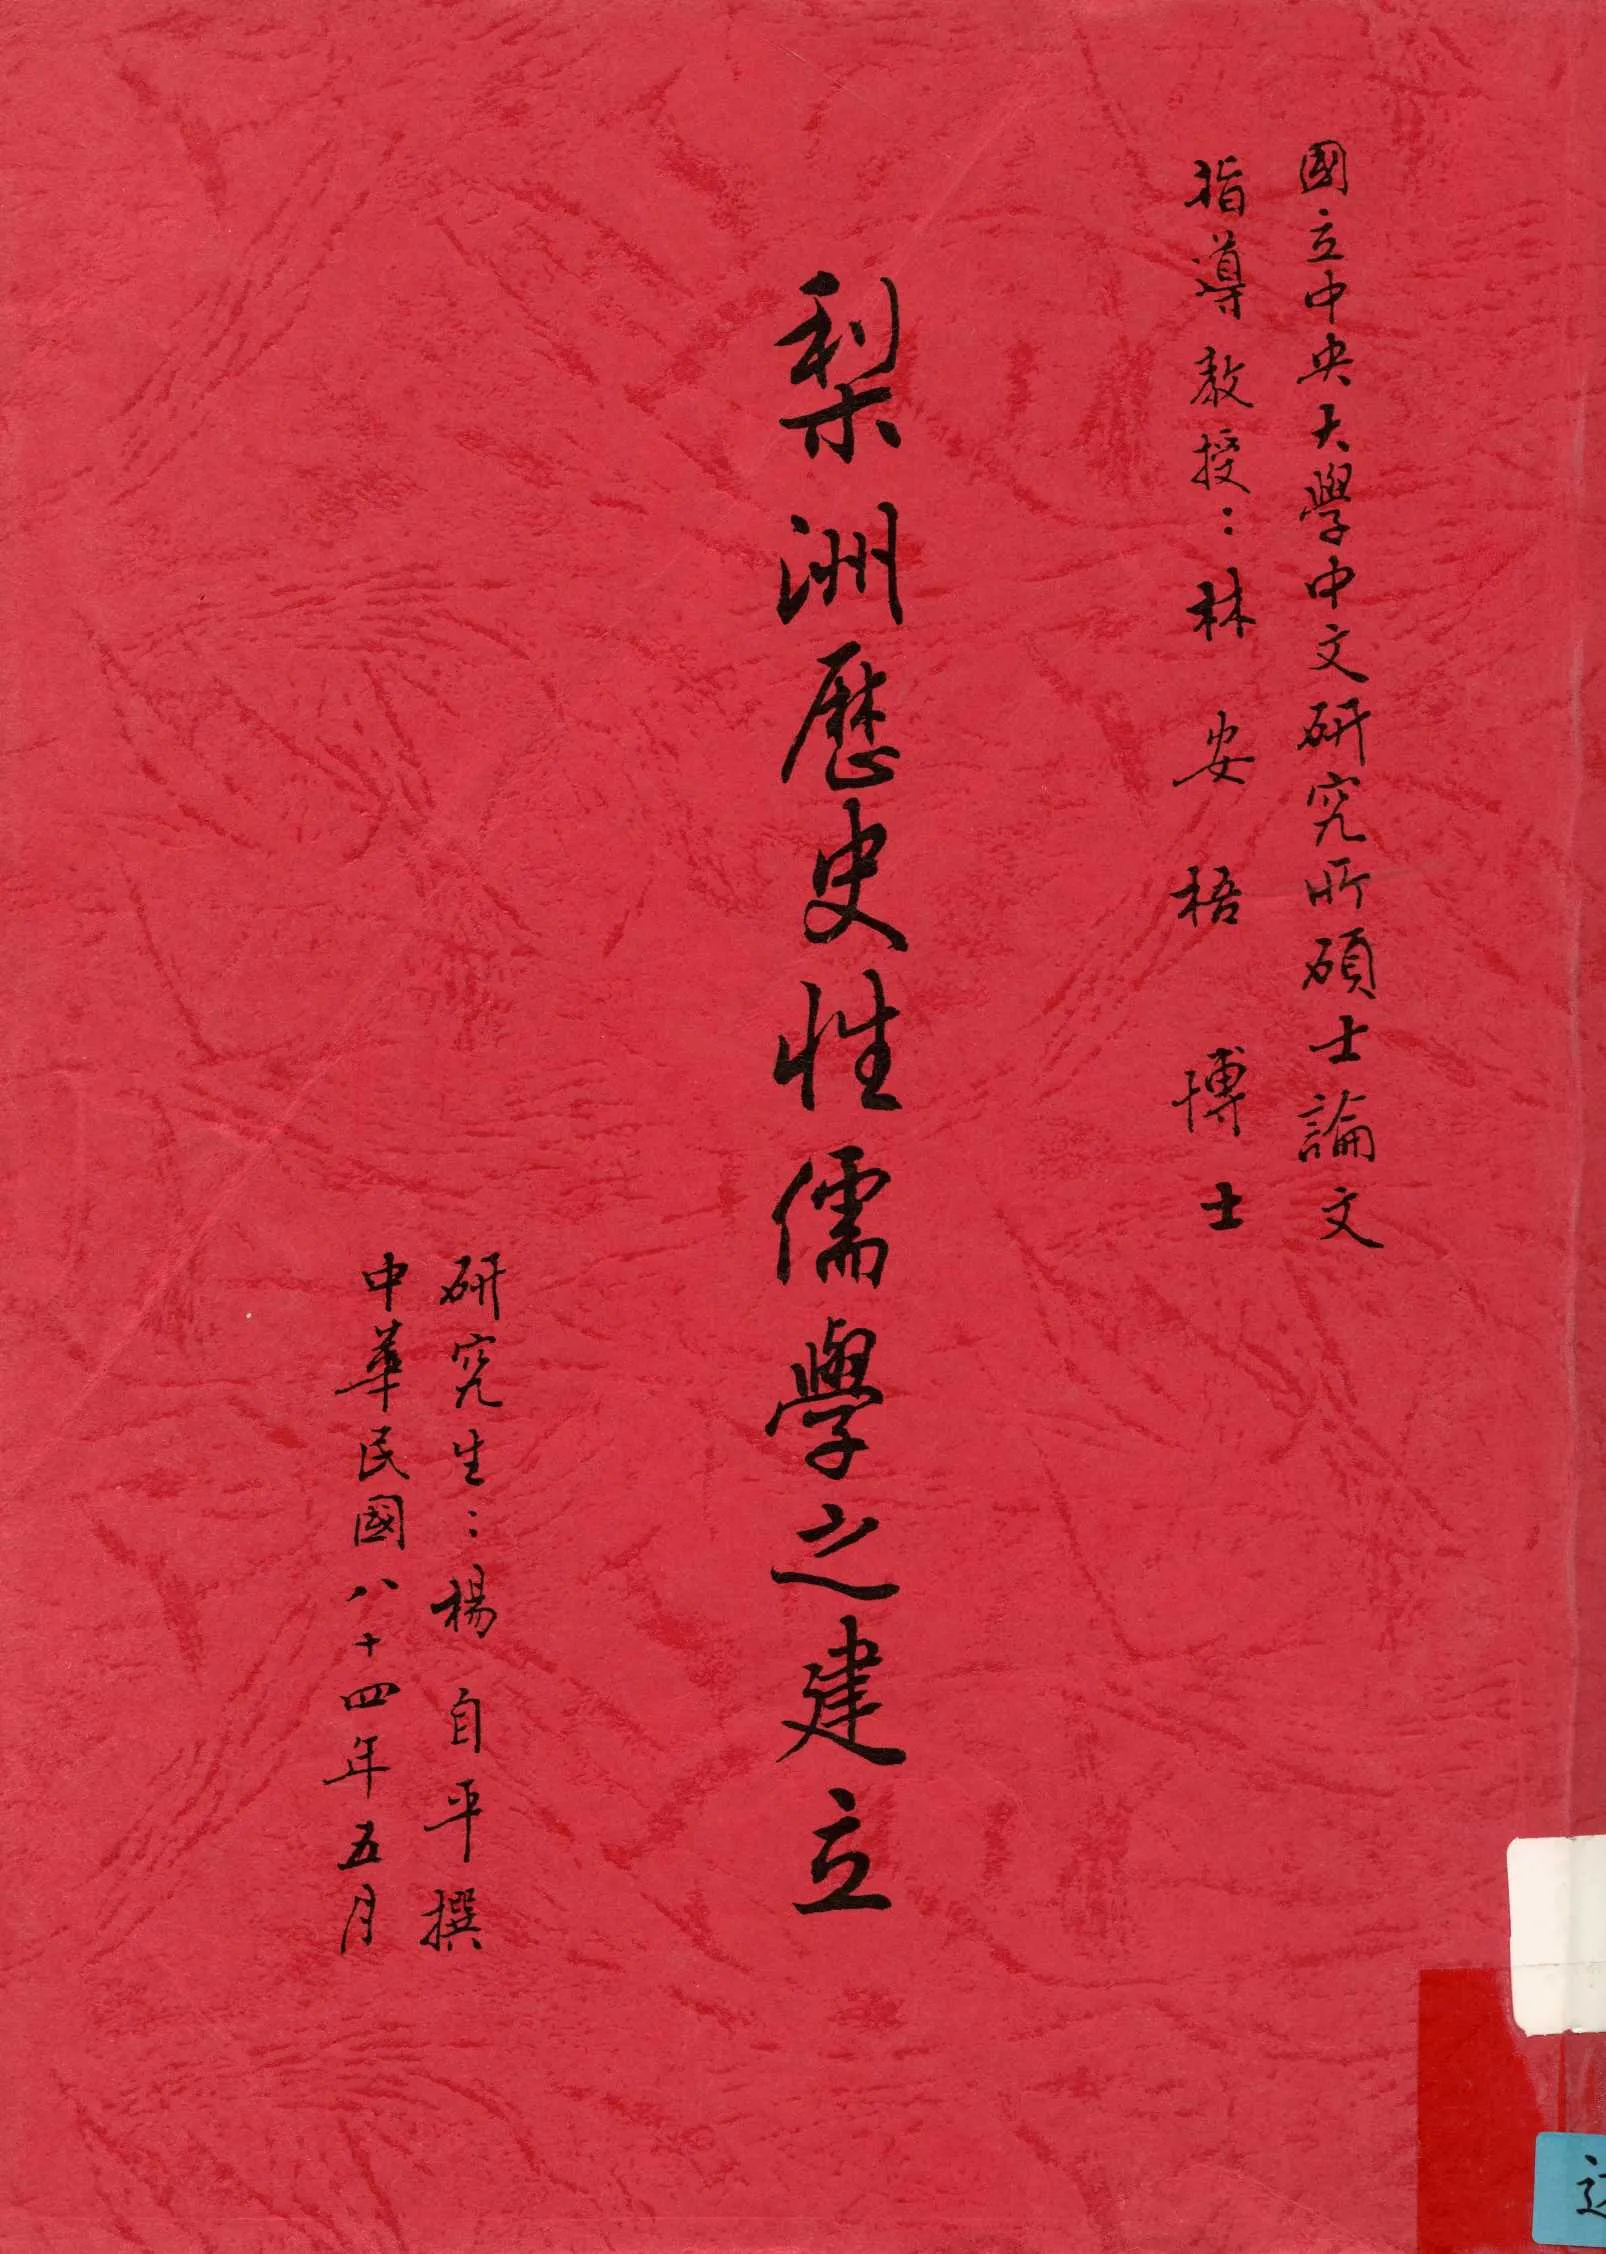 國立中央大學中文研究所碩士論文
指導教授：林安梧博士
梨洲歷史性儒學之建立
研究生：楊自平撰
中華民國八十四年五月